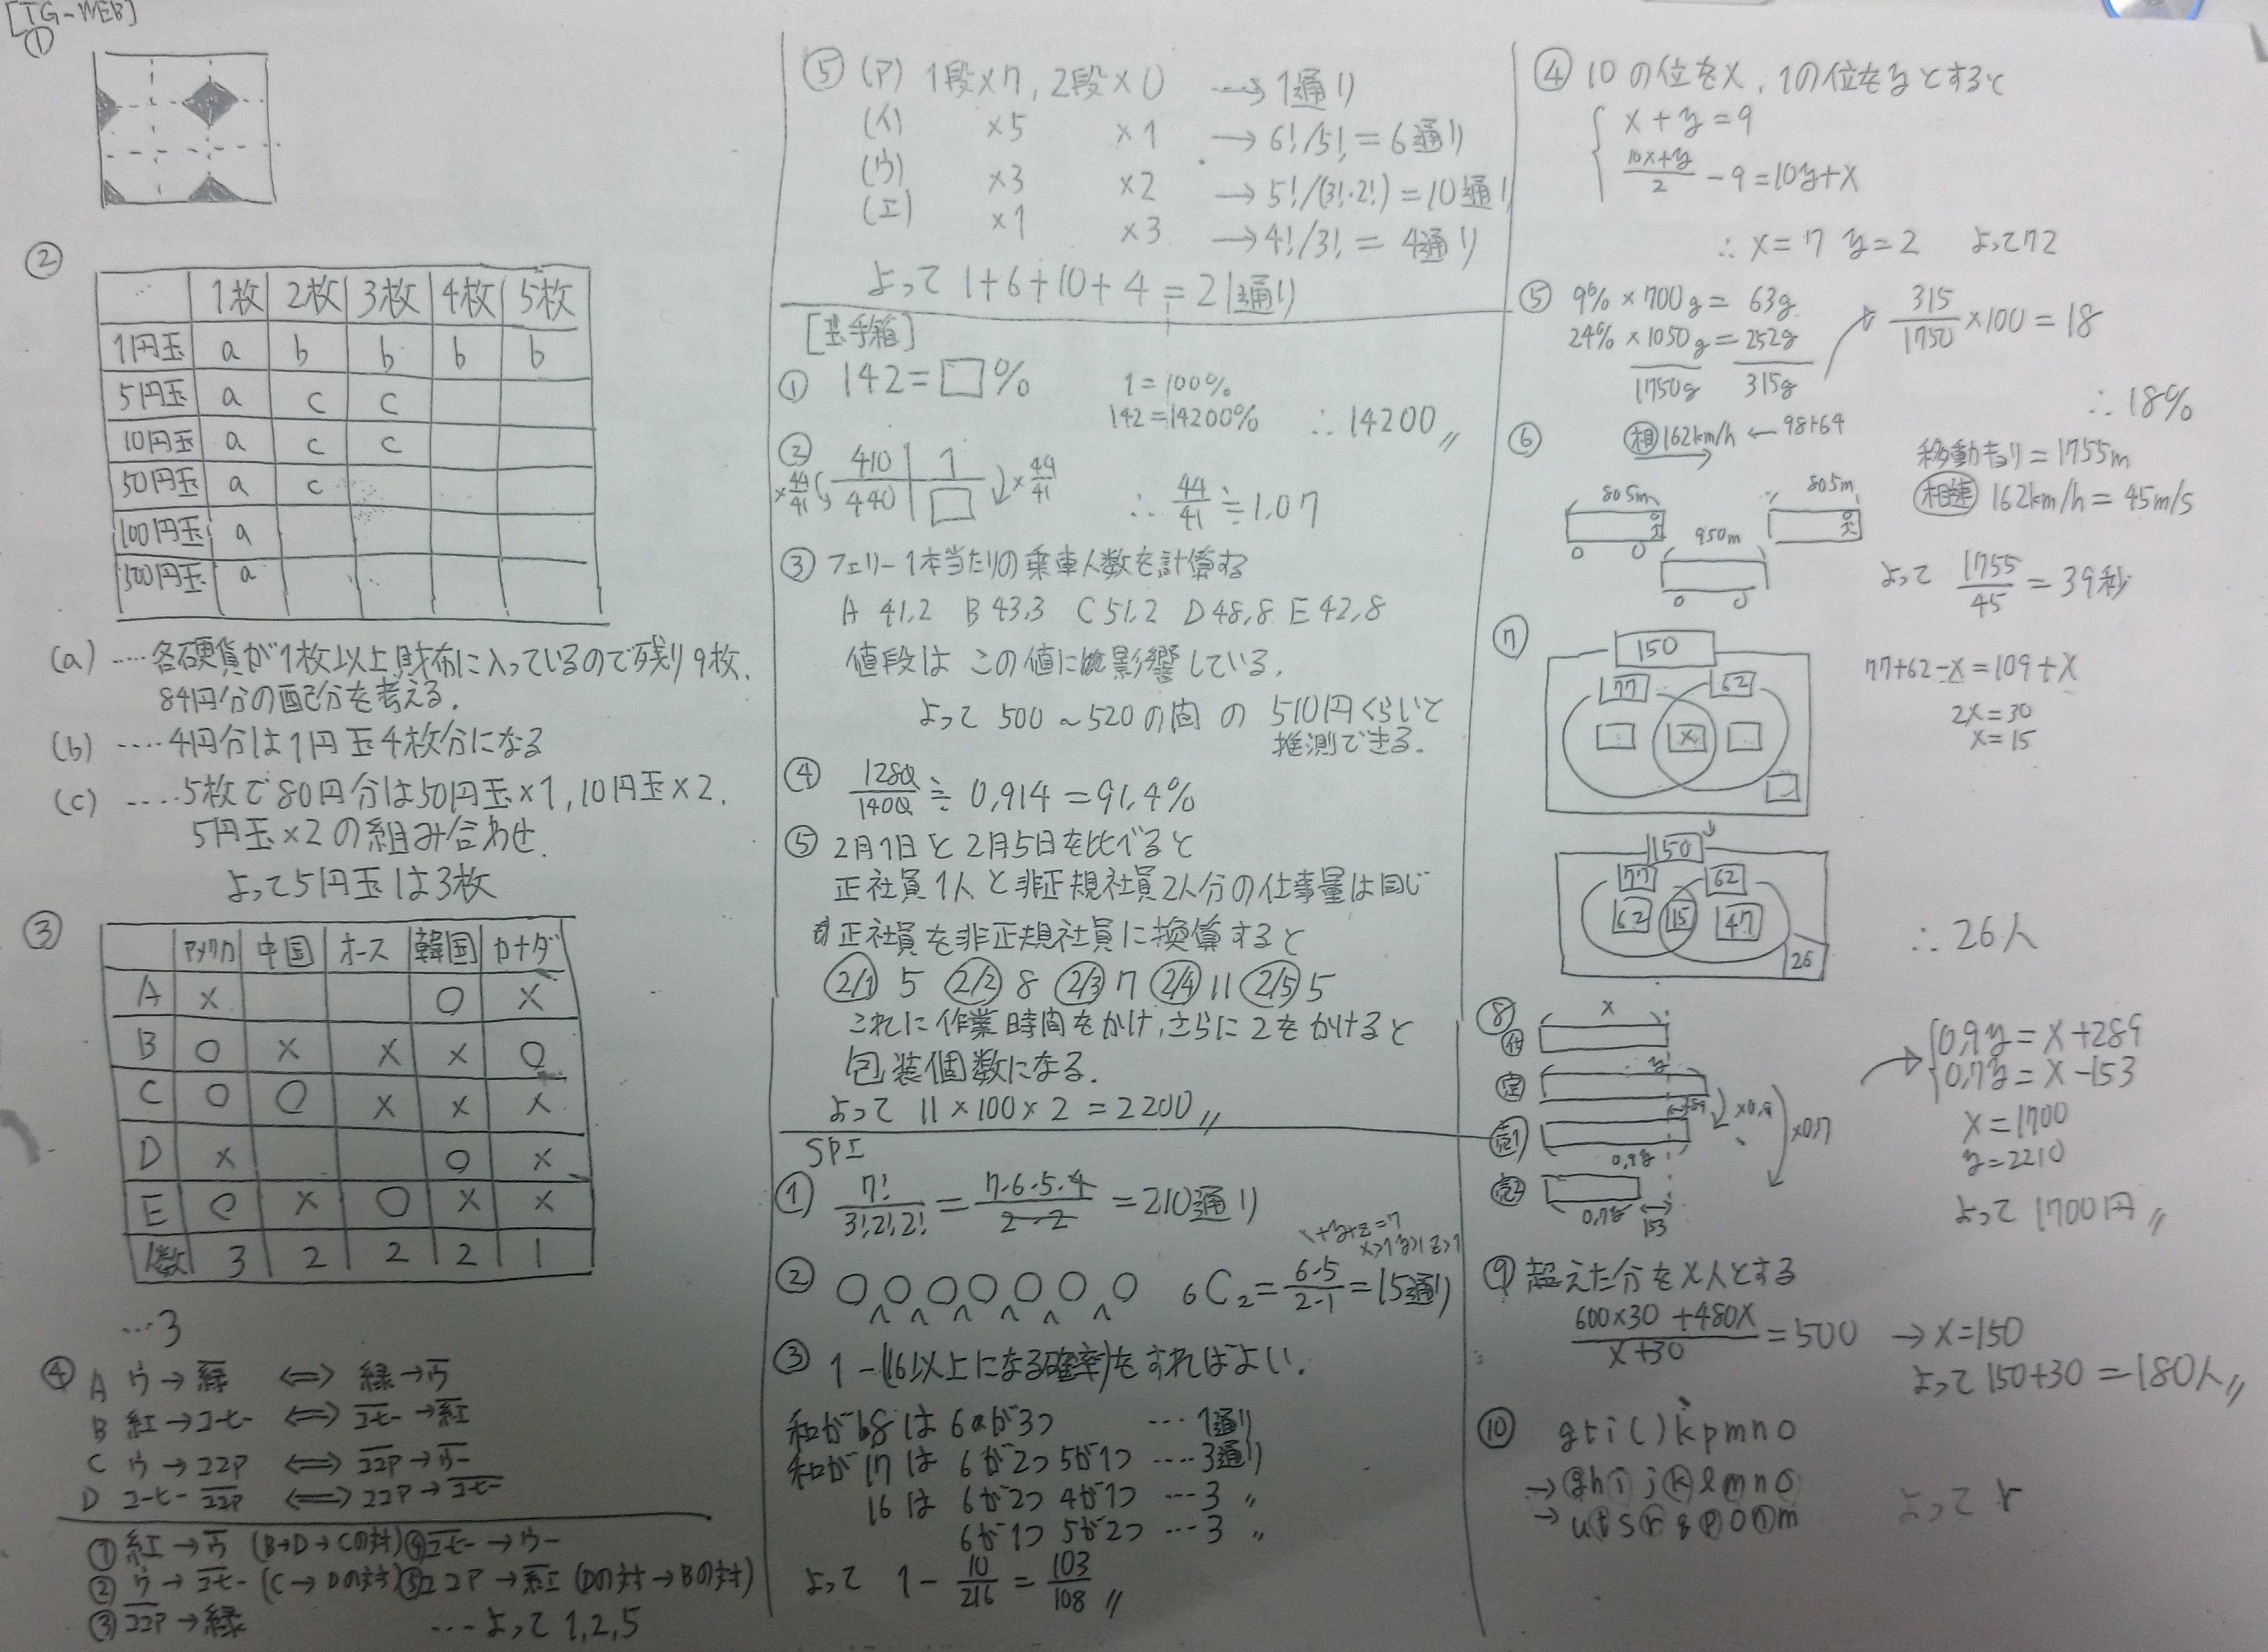 [TG-WEB]
①
②
1枚 2枚 3枚 4枚 5枚
1円玉 a b b b b
5円玉 a c c
10円玉 a c c
50円玉 a c
100円玉 a
500円玉 a
(a) ‥‥各硬貨が1枚以上財布に入っているので残り9枚.
84円分の配分を考える.
(b) ‥‥4円分は1円玉4枚分になる
(c) ‥‥5枚で80円分は50円玉×1, 10円玉×2.
5円玉×2の組み合わせ.
よって5円玉は3枚
③
アメリカ 中国 オース 韓国 カナダ
A × ○ ×
B ○ × × × ○
C ○ ○ × × ×
D × ○ ×
E ○ × ○ × ×
人数 3 2 2 2 1
‥‥3
④ A ウ→緑 ⇔ 緑→ウ
B 紅→コーヒー ⇔ コーヒー→紅
C ウ→ココア ⇔ ココア→ウー
D コーヒー→ココア ⇔ ココア→コーヒー
① 紅→ウ (B→D→Cの対) ④ コーヒー→ウー
② ウ→コーヒー (C→Dの対) ⑤ ココア→紅 (Dの対→Bの対)
③ ココア→緑
‥‥よって 1,2,5
⑤ (ア) 1段×7, 2段×0 ‥→ 1通り
(イ) ×5 ×1 → 6!/5! = 6通り
(ウ) ×3 ×2 → 5!/(3!・2!) = 10通り
(エ) ×1 ×3 → 4!/3! = 4通り
よって 1+6+10+4 = 21通り
[玉手箱]
① 142=□%
1=100%
142=14200% ∴14200〃
② 410 1
440 □
×44/41 ×44/41
∴ 44/41 ≒ 1.07
③ フェリー1本当たりの乗車人数を計算する
A 41,2 B 43,3 C 51,2 D 48,8 E 42,8
値段は この値に 影響している.
よって 500~520の間の 510円くらいと
推測できる.
④ 128Q/140Q ≒ 0,914 = 91,4%
⑤ 2月1日と2月5日を比べると
正社員1人と非正規社員2人分の仕事量は同じ
正社員を非正規社員に換算すると
2/1 5 2/2 8 2/3 7 2/4 11 2/5 5
これに作業時間をかけ,さらに2をかけると
包装個数になる.
よって 11×100×2=2200〃
SPI
① 7!/3!2!2! = 7・6・5・4/2・2 = 210通り
x+y+z=7
x>1 y>1 z>1
② ○○○○○○○ 6C2 = 6・5/2・1 = 15通り
③ 1-(16以上になる確率)をすればよい.
和が18は 6が3つ ‥‥1通り
和が17は 6が2つ 5が1つ ‥‥3通り
16は 6が2つ 4が1つ ‥‥3〃
6が1つ 5が2つ ‥‥3〃
よって 1 - 10/216 = 103/108〃
④ 10の位をx, 1の位をyとすると
x+y=9
(10x+y)/2 - 9 = 10y+x
∴ x=7 y=2 よって72
⑤ 9% × 700g = 63g
24% × 1050g = 252g
1750g 315g
315/1750 ×100 = 18
∴ 18%
⑥ 相 162km/h ← 98+64
805m 950m 805m
移動キョリ=1755m
相速 162km/h=45m/s
よって 1755/45 = 39秒
⑦ 150
77 62
x
77+62-x=109+x
2x=30
x=15
150
77 62
62 15 47
26
∴ 26人
⑧ x
仕
y
定
289 ×0,9
売1 ×0,7
0,9y
売2
0,7y 153
0,9y=x+289
0,7y=x-153
x=1700
y=2210
よって 1700円〃
⑨ 超えた分をx人とする
(600×30+480x)/(x+30) = 500 → x=150
よって 150+30=180人〃
⑩ g t i ( ) k p m n o
→ g h i j k l m n o
→ u t s r q p o n m
よって r